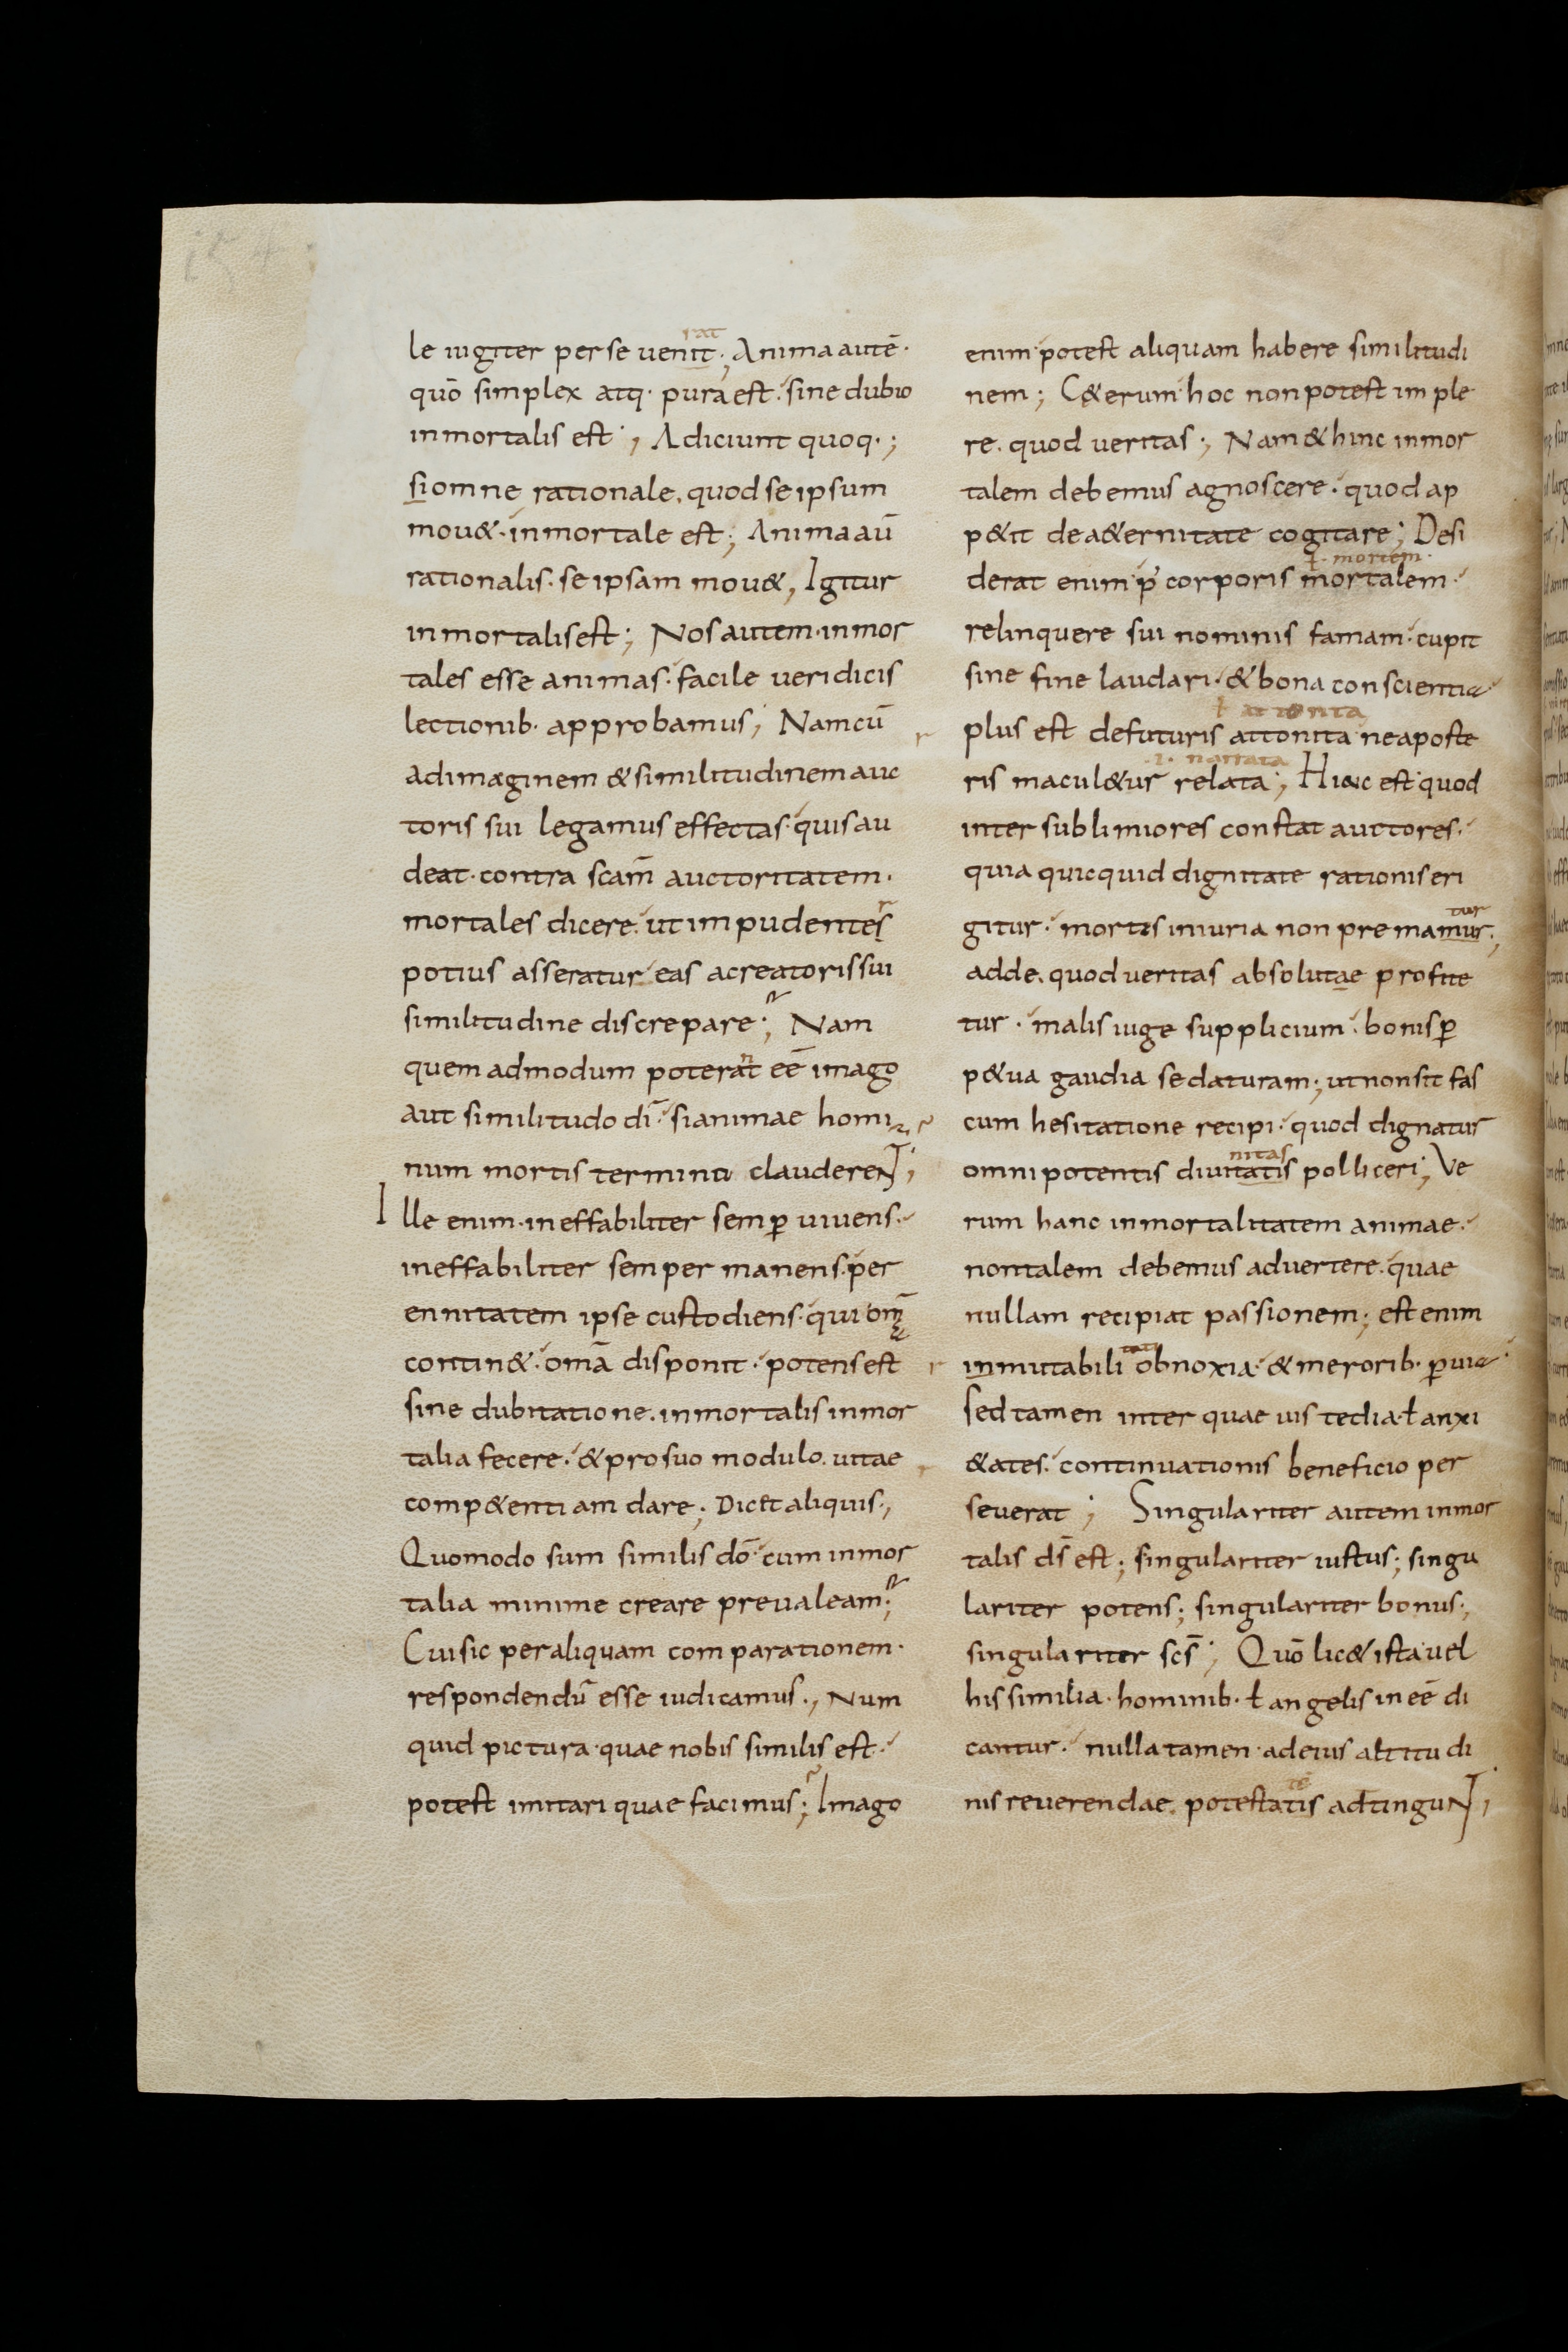 154
le iugiter per se uenit; Anima autē·
rat
quō simplex atq· pura est· sine dubio
inmortalis est·, Adiciunt quoq·;
si omne rationale, quod se ipsum
mou&· inmortale est; Anima aū
rationalis· se ipsam mou&, Igitur
inmortalis est; Nos autem· inmor
tales esse animas· facile ueridicis
lectionib· approbamus; Nam cū
ad imaginem & similitudinem auc
toris sui legamus effectas· quis au
deat· contra scam̄ auctoritatem·
mortales dicere· ut impudentes
potius asseratur eas a creatoris sui
similitudine discrepare·; Nam
quem admodum poterat eē imago
n
aut similitudo dī· si animae homi
num mortis termino clauderenT;
Ille enim· ineffabiliter semp̄ uiuens·
ineffabiliter semper manens· per
ennitatem ipse custodiens· qui om̄
contin&· omā disponit· potens est
sine dubitatione· inmortalis inmor
talia fecere· & pro suo modulo· uitae
comp&entiam dare; Dic&t aliquis·,
Quomodo sum similis dō· cum inmor
talia minime creare preualeam·;
Cui sic per aliquam comparationem·
respondendū esse iudicamus·, Num
quid pictura· quae nobis similis est·
potest imitari quae facimus; Imago
enim· potest aliquam habere similitudi
nem; C&erum· hoc non potest imple
re· quod ueritas; Nam & hinc inmor
talem debemus agnoscere· quod ap
p&it de a&ernitate cogitare; Desi
ł· mortem·
derat enim· p̄ corporis mortalem·
relinquere sui nominis famam· cupit
sine fine laudari· & bona conscientia
ł at onita
plus est de futuris attonita· ne a poste
·i· narrata
ris macul&ur relata; Hinc est· quod
inter sublimiores constat auctores·
quia quicquid dignitate rationis eri
gitur· mortis iniuria non premamur·;
tur
adde· quod ueritas absolutae profite
tur· malis iuge supplicium· bonis p̄
p&ua gaudia se daturam; ut non sit fas
cum hesitatione recipi· quod dignatur
omnipotentis diuitatis polliceri; Ve
nitas
rum hanc inmortalitatem animae·
non talem debemus aduertere· quae
nullam recipiat passionem; est enim
inmutabili obnoxia· & merorib· p̄uia
tati
sed tamen inter quae uis tedia· ł anxi
&ates· continuationis beneficio per
seuerat; Singulariter autem inmor
talis d̄s est; singulariter iustus; singu
lariter potens; singulariter bonus·,
singulariter sc̄s; Quō lic& ista· uel
his similia· hominib· ł angelis inēē di
cantur· nulla tamen· ad eius altitudi
nis reuerendae· potestatis adtingunT;
tē